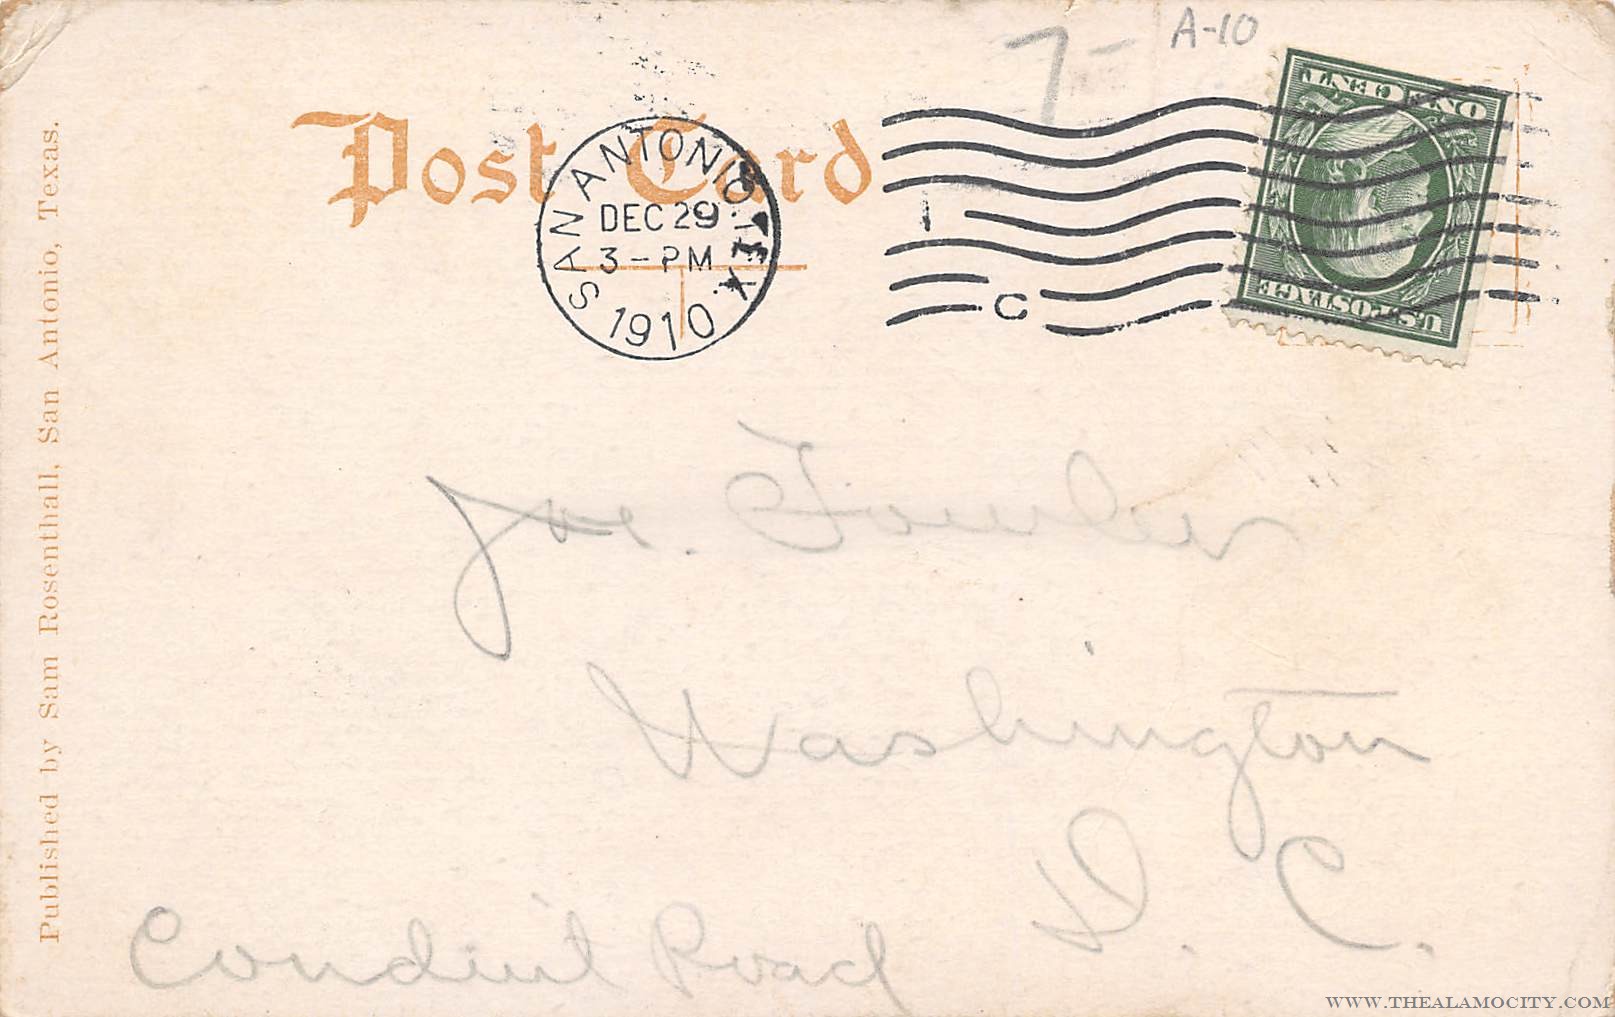 7-
A-10
Post Card
SAN ANTONIO, TEX.
DEC 29
3-PM
1910
C
ONE CENT
U.S. POSTAGE
Joe. Fowler
Washington
D. C.
Conduit Road
Published by Sam Rosenthall, San Antonio, Texas.
WWW.THEALAMOCITY.COM